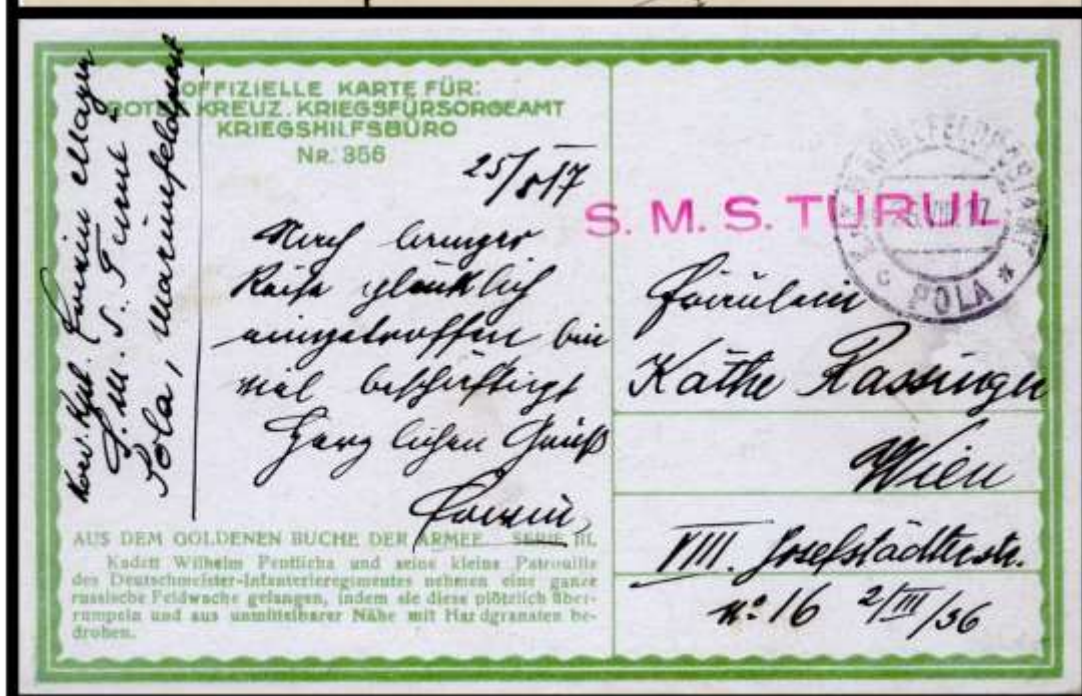 OFFIZIELLE KARTE FÜR:
ROTES KREUZ, KRIEGSFÜRSORGEAMT
KRIEGSHILFSBÜRO
NR. 356
25/8 17
Nach langer
Reise glücklich
eingetroffen bin
viel beschäftigt
Herzlichen Gruß
Erwin,
Erwin Mayer
S. M. S. Turul
Pola, Marinefeldpost
AUS DEM GOLDENEN BUCHE DER ARMEE. SERIE III.
Kadett Wilhelm Pentlicha und seine kleine Patrouille
des Deutschmeister-Infanterieregimentes nehmen eine ganze
russische Feldwache gefangen, indem sie diese plötzlich über-
rumpeln und aus unmittelbarer Nähe mit Handgranaten be-
drohen.
S. M. S. TURUL
C POLA *
Fräulein
Käthe Rassinger
Wien
VIII. Josefstädterstr.
No 16 2/III/36